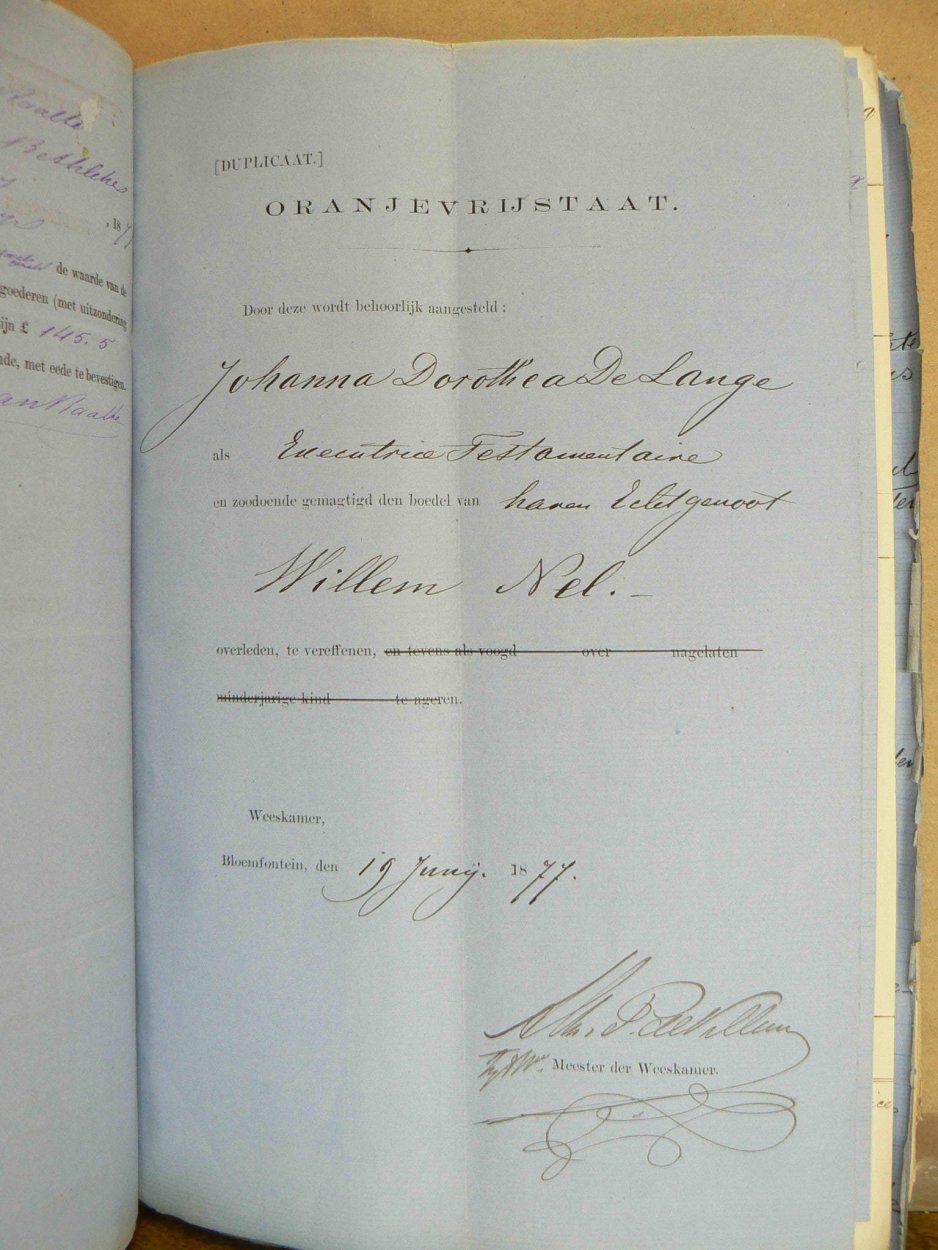 Bethlehe
, 18 71
de waarde van de
goederen (met uitzondering
ijn £ 145.5
nde, met eede te bevestigen.
an Raalte
[DUPLICAAT.]
ORANJEVRIJSTAAT.
Door deze wordt behoorlijk aangesteld :
Johanna Dorothea De Lange
als Executrice Testamentaire
en zoodoende gemagtigd den boedel van haren Echtgenoot
Willem Nel. —
overleden, te vereffenen, en tevens als voogd over nagelaten
minderjarige kind te ageren.
Weeskamer,
Bloemfontein, den 19 Junij. 1877.
P. de Villiers
Meester der Weeskamer.